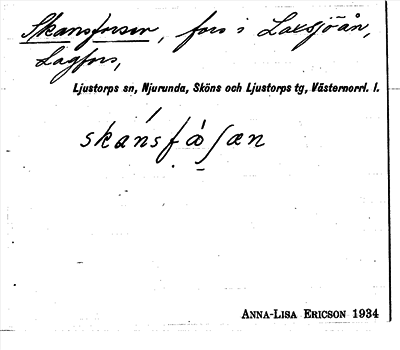 Skansforsen, fors i Laxsjöån,
Lagfors,
Ljustorps sn, Njurunda, Sköns och Ljustorps tg, Västernorrl. l.
skánsfàʃæn
ANNA-LISA ERICSON 1934